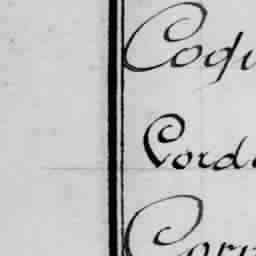 Coqu
Corda
Corn